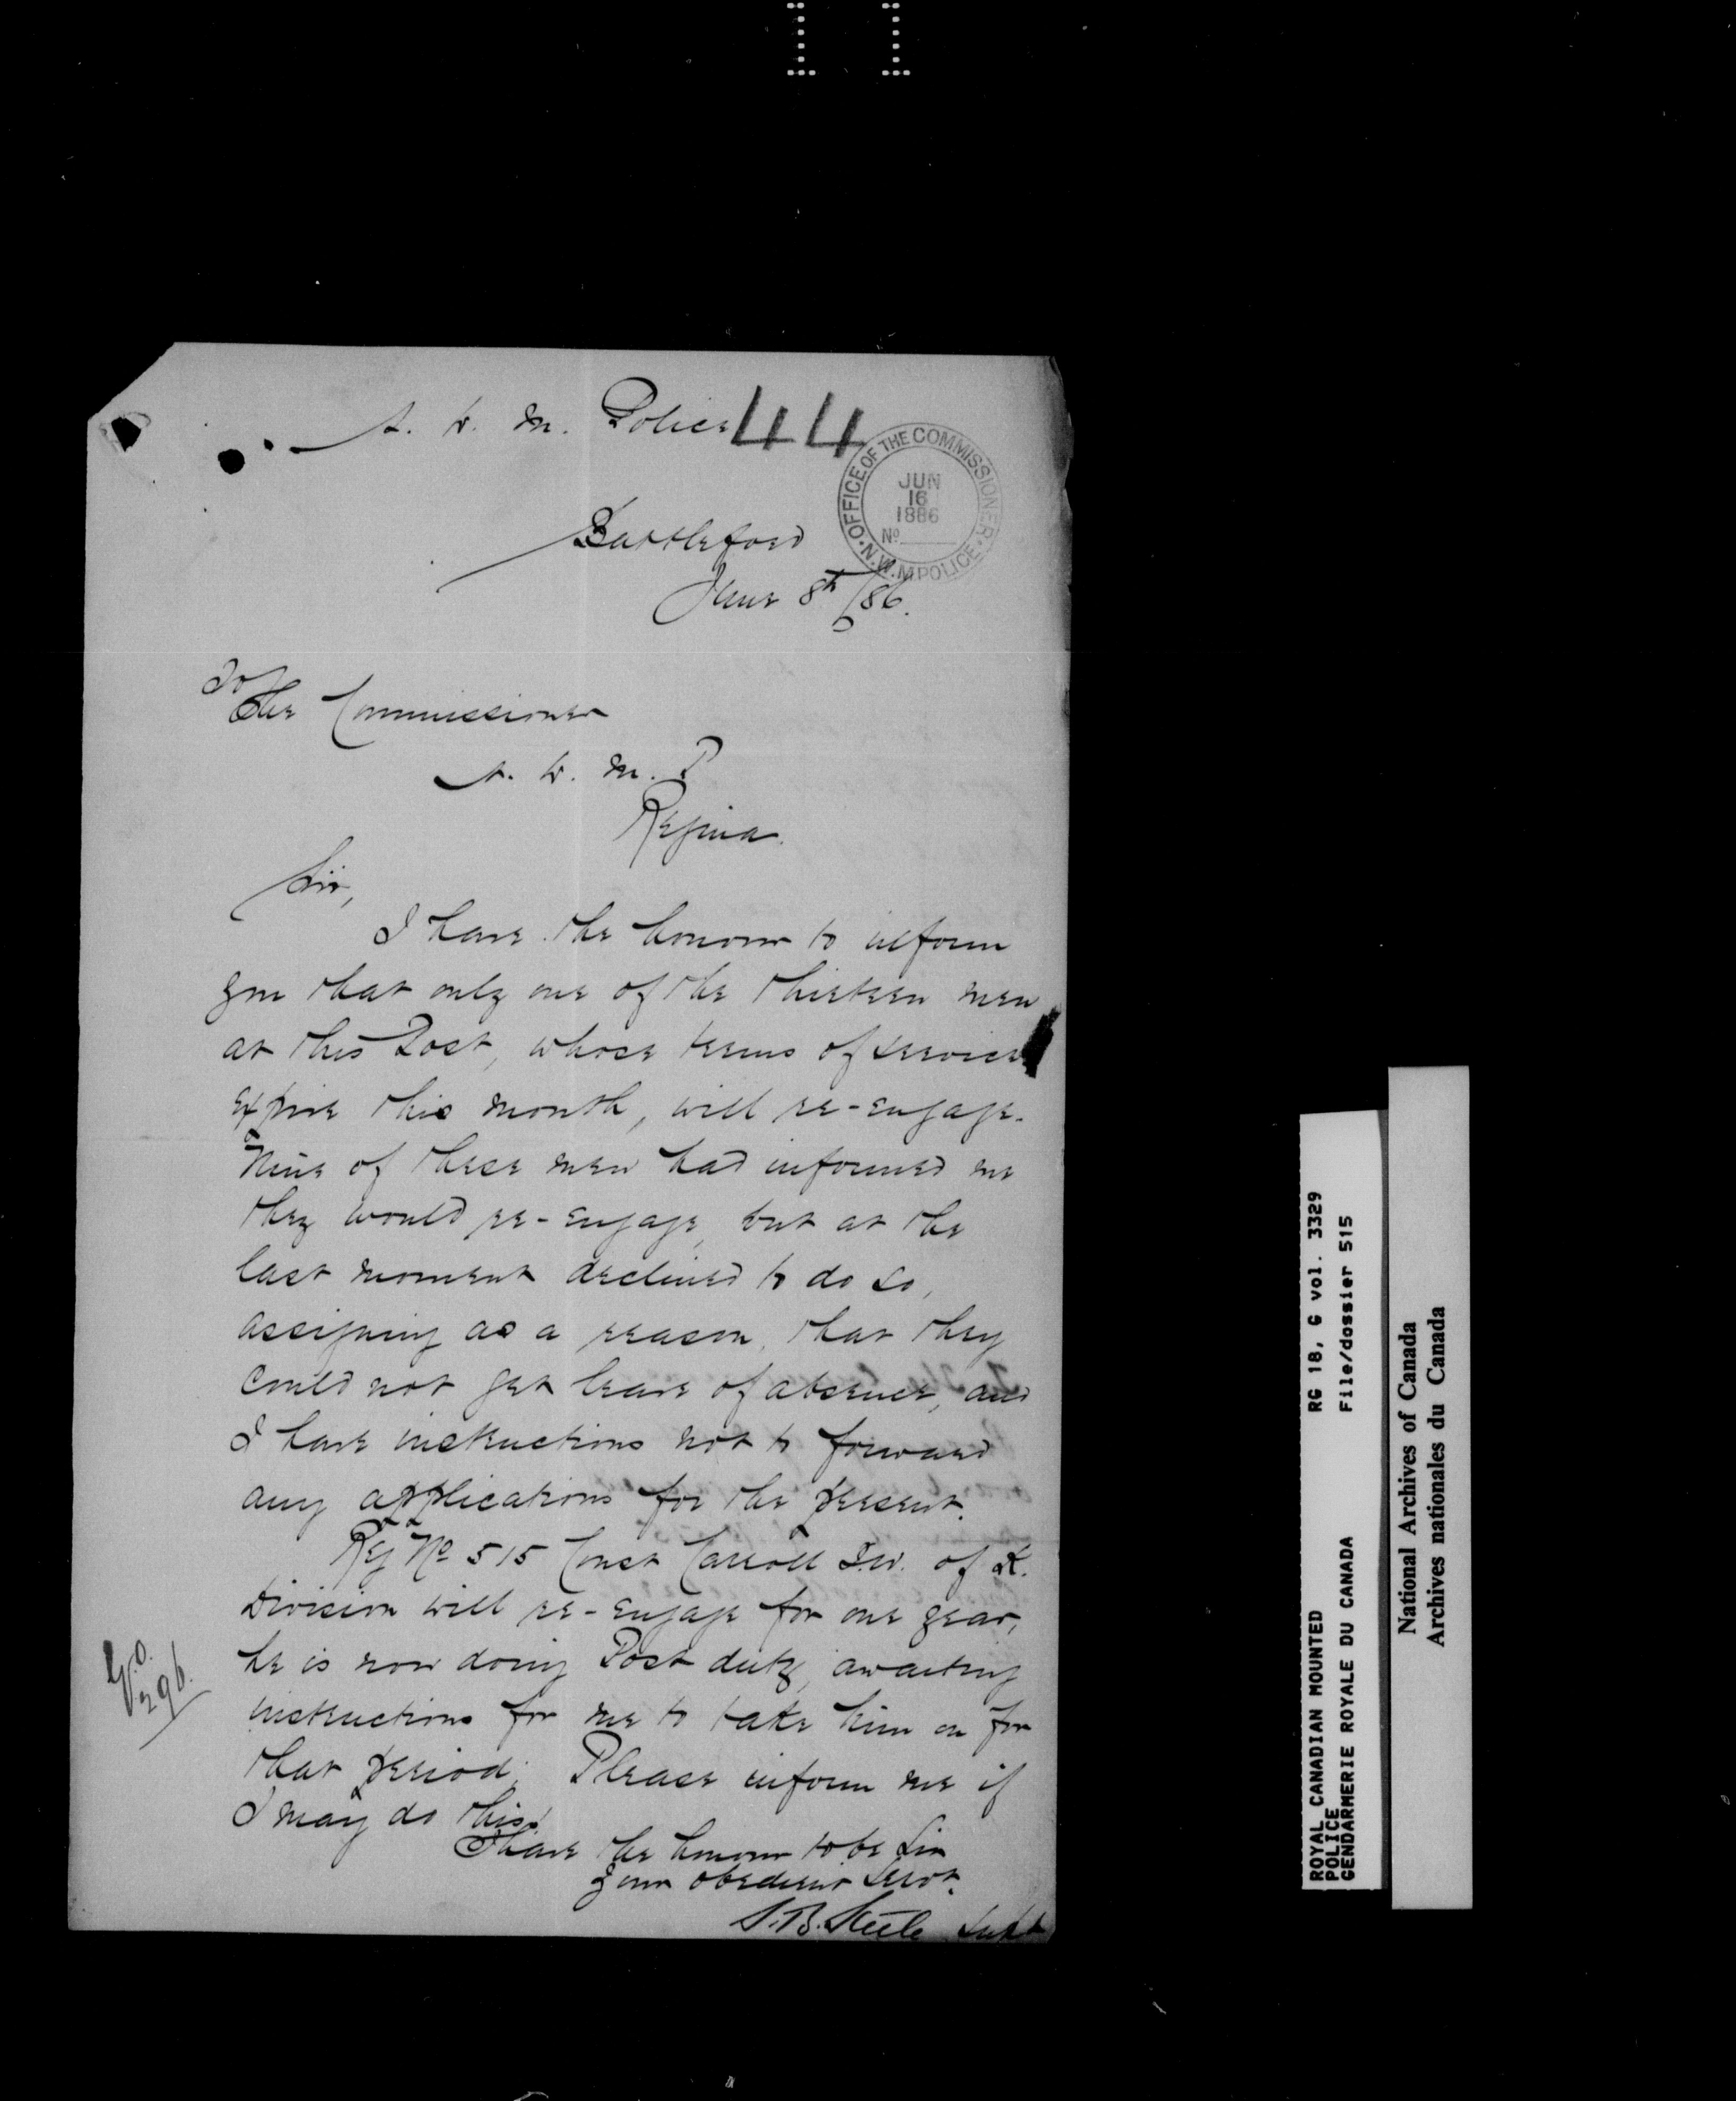 N. W. M. Police 44
OFFICE OF THE COMMISSIONER
JUN
16
1886
No
N.W.M POLICE
Battleford
June 8th/86.
To
The Commissioner
N. W. M. P
Regina.
Sir,
I have the honour to inform
you that only one of the thirteen men
at this Post, whose terms of service
expire this month, will re-engage.
Nine of these men had informed me
they would re-engage, but at the
last moment declined to do so,
assigning as a reason, that they
could not get leave of absence, and
I have instructions not to forward
any applications for the present.
Reg No 515 Const Carroll T.W. of K.
Division will re-engage for one year,
he is now doing Post duty, awaiting
instructions for me to take him on for
that period. Please inform me if
I may do this.
I have the honour to be Sir
Your obedient Servt.
S.B. Steele Supt
G.O.
296.
ROYAL CANADIAN MOUNTED RG 18, G vol. 3329
POLICE
GENDARMERIE ROYALE DU CANADA File/dossier 515
National Archives of Canada
Archives nationales du Canada